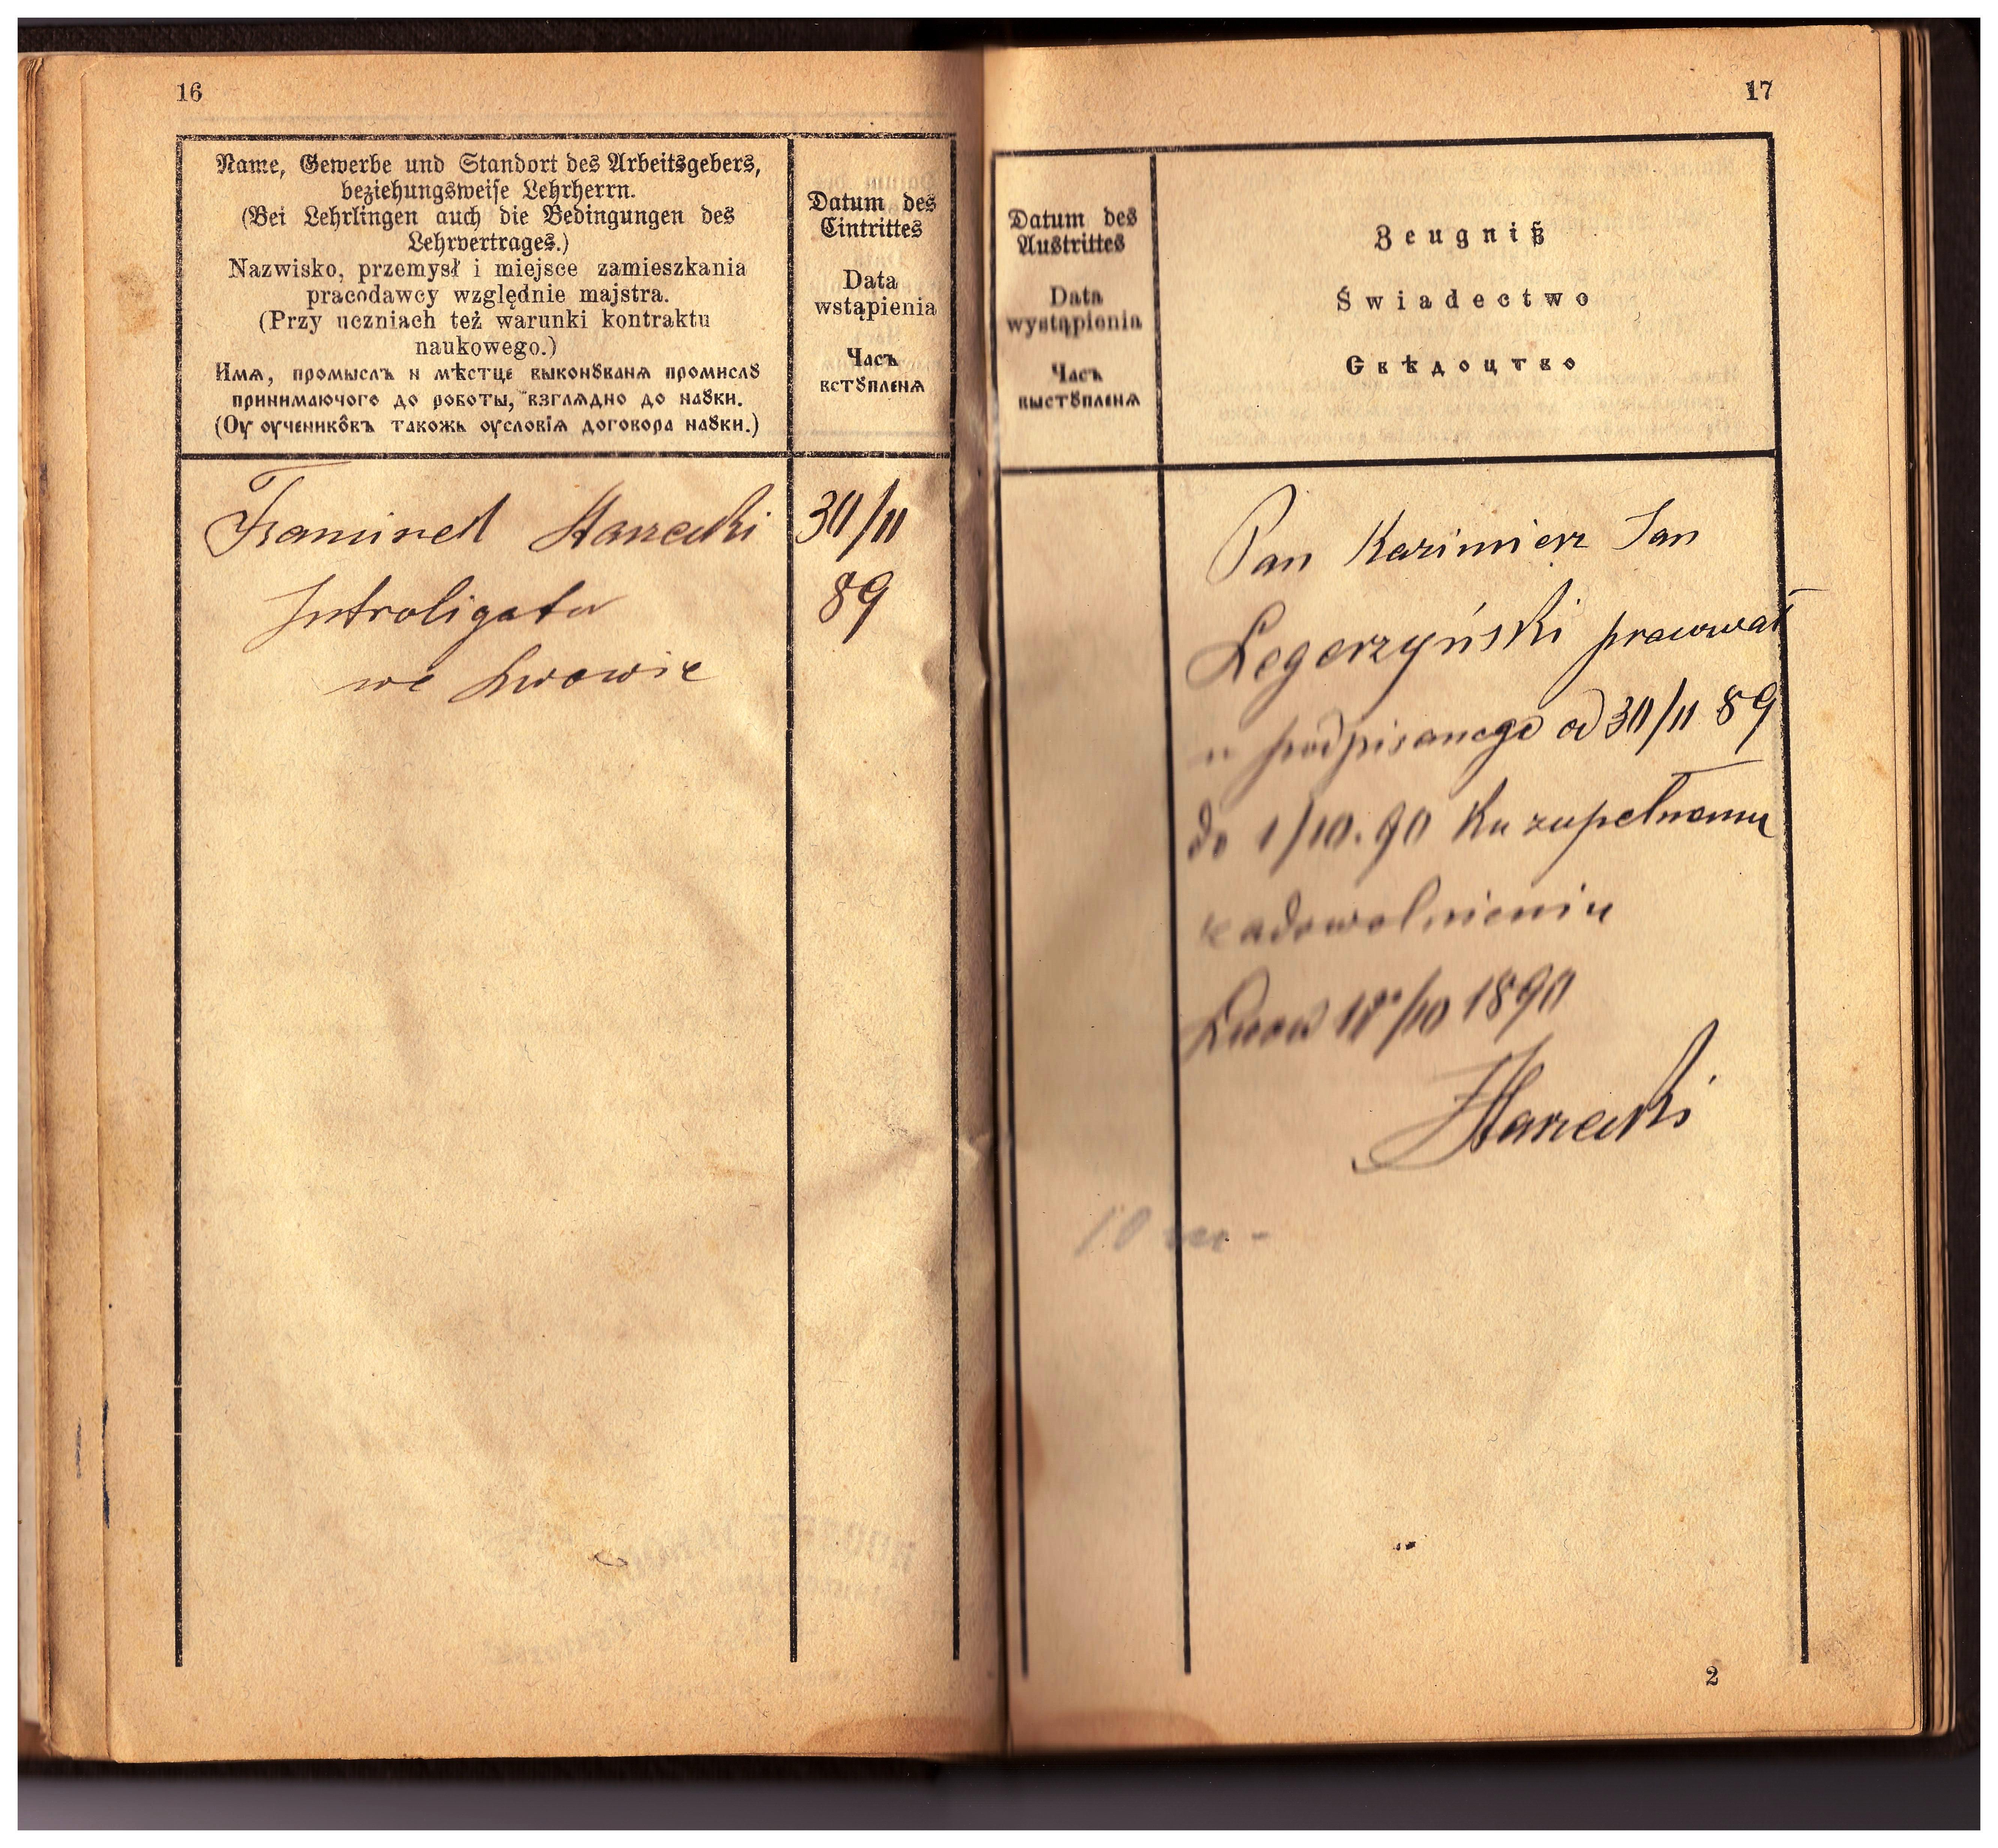 16
Name, Gewerbe und Standort des Arbeitsgebers,
beziehungsweise Lehrherrn.
(Bei Lehrlingen auch die Bedingungen des
Lehrvertrages.)
Nazwisko, przemysł i miejsce zamieszkania
pracodawcy względnie majstra.
(Przy uczniach też warunki kontraktu
naukowego.)
Имѧ, промыслъ и мѣстце выконꙋванѧ промислꙋ
принимаючого до роботы, взглѧдно до наꙋки.
(Оу оученикôвъ такожь оусловіѧ договора наꙋки.)
Datum des
Eintrittes
Data
wstąpienia
Часъ
встꙋпленѧ
Introligator
we Lwowie
30/11
89
17
Datum des
Austrittes
Data
wystąpienia
Часъ
выстꙋпленѧ
Zeugniß
Świadectwo
Свѣдоцтво
Pan Kazimierz Jan
Legerzyński pracował
u podpisanego od 30/11 89
do 1/10. 90 ku zupełnemu
zadowolnieniu
Lwow /10 1890
10
2